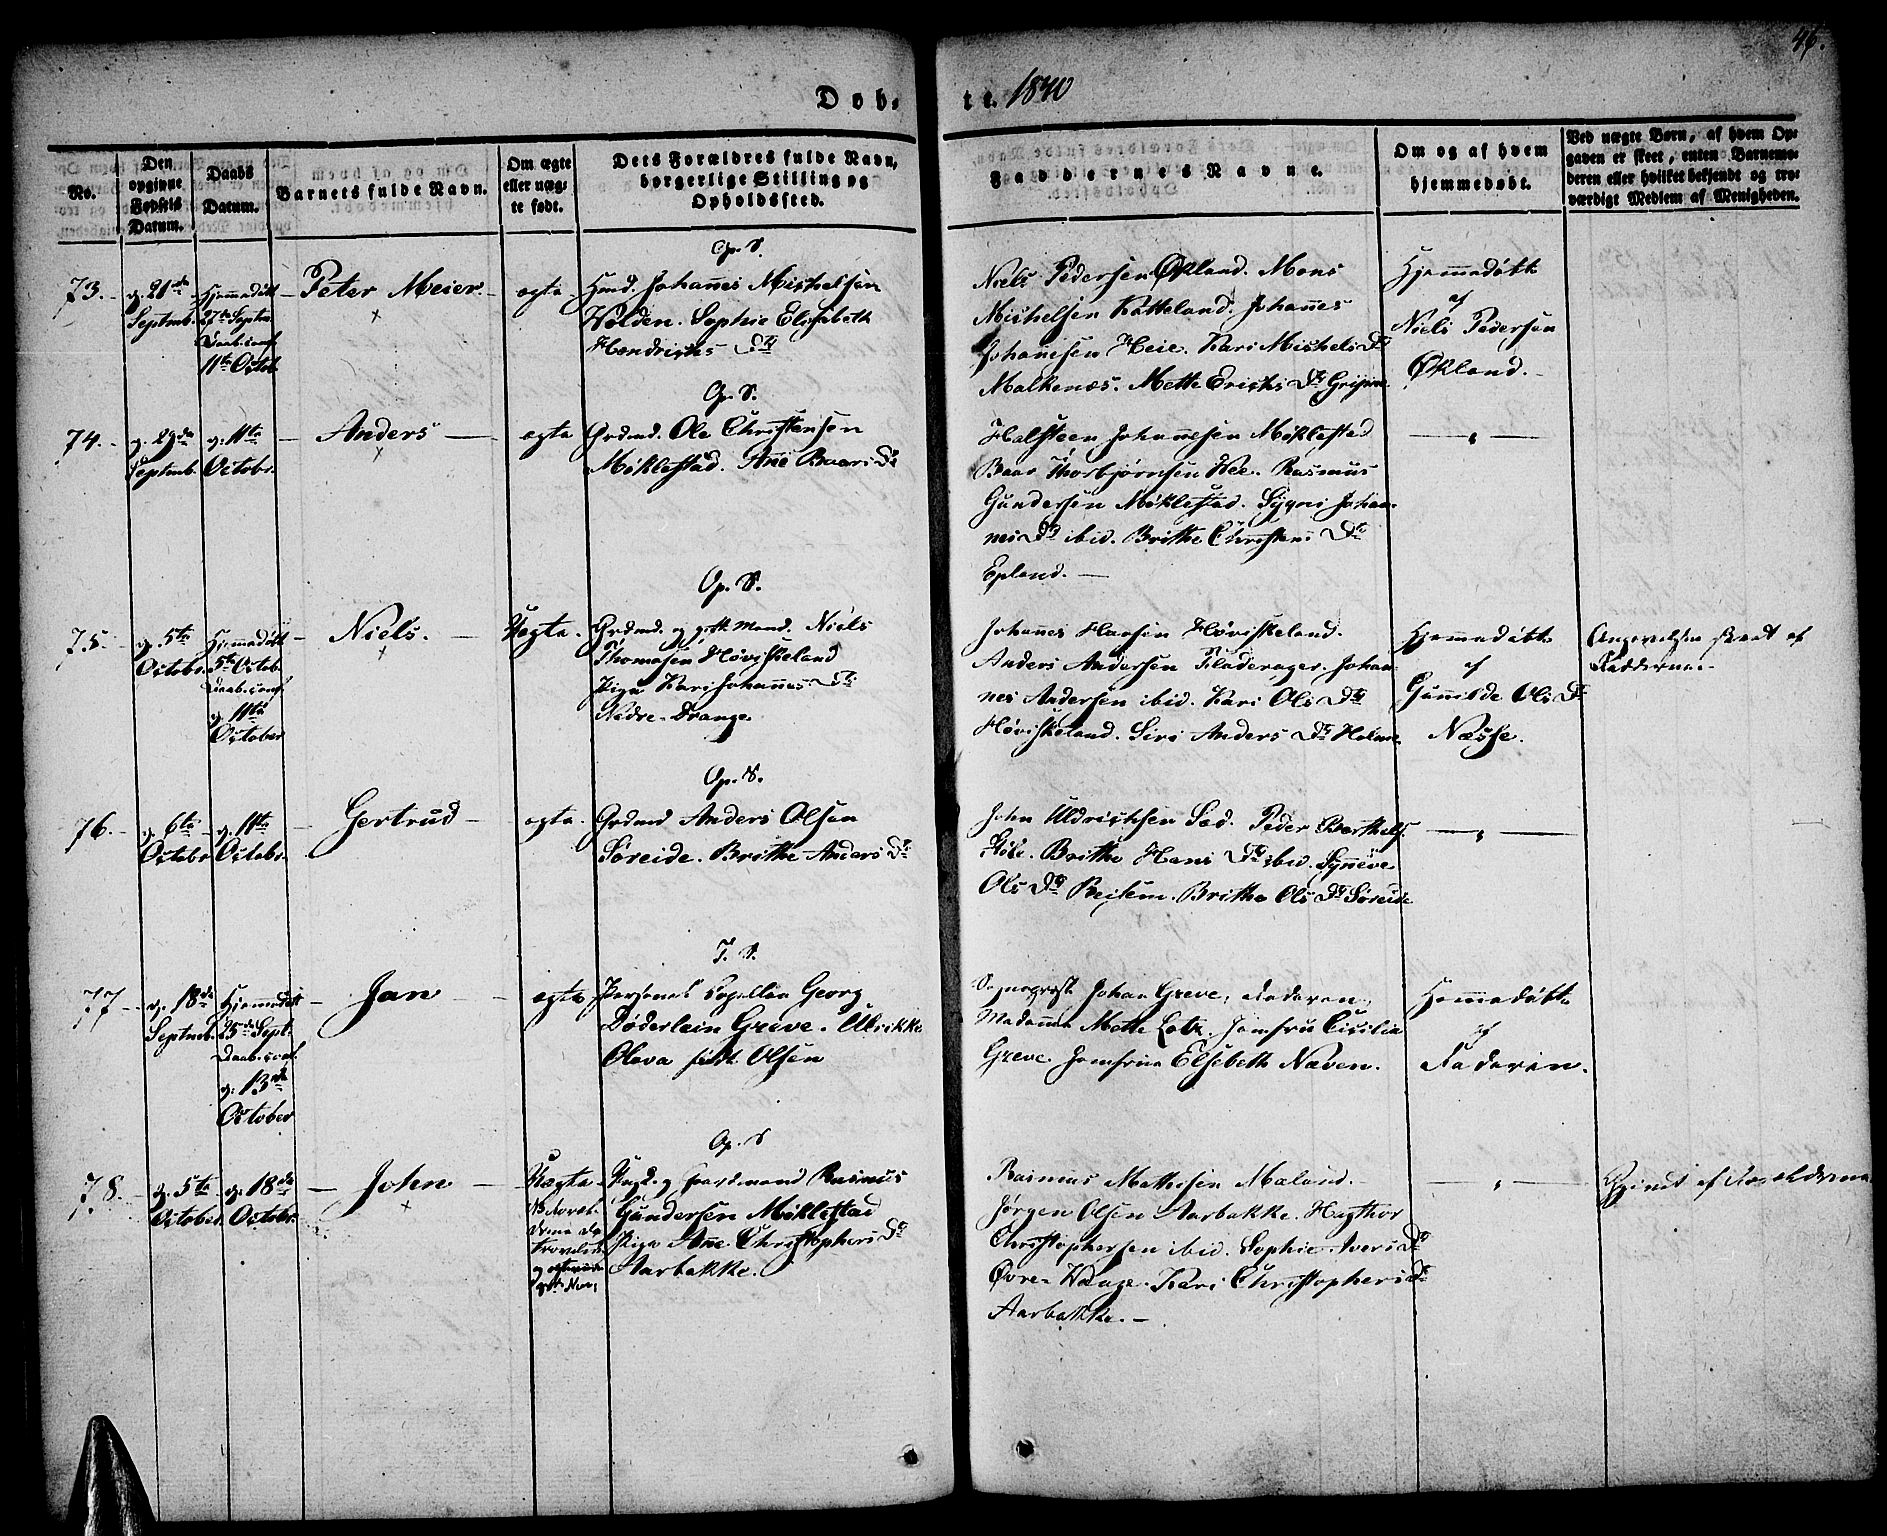 46.
Døb- te. 1840
No.
Den opgivne Fødsels Datum.
Daabs Datum.
Barnets fulde Navn.
Om ægte eller uægte født.
Dets Forældres fulde Navn, borgerlige Stilling og Opholdssted.
Faddernes Navne.
Om og af hvem hjemmedøbt.
Ved uægte Børn, af hvem Opgaven er skeet, enten Barnemoderen eller hvilket bekjendt og troværdigt Medlem af Menigheden.
73.
d. 21de
Septemb.
Hjemmedøbt
27de Septm.
Daab. conf.
11te Octob.
Peter Meier.
ægte
Op. S.
Huusmd. Johannes Michelsen
Wolden. Sophie Elisabeth
Hendrichs Dtr
Niels Pedersen Økland. Mons
Michelsen Katteland. Johannes
Johannesen Heie. Kari Michels Dtr
Malkenæs. Mette Erichs Dtr
Hjemmedøbt
af
Niels Pedersen
Økland.
74.
d. 29de
Septemb.
d. 11te
Octobr.
Anders
ægte
Op. S.
Grdmd. Ole Christensen
Møklestad. Ane Baars Dtr
Halsteen Johannesen Møklestad
Baar Thorbjørnsen Wee. Rasmus
Gundersen Møklestad. Sygni Johan-
nes Dtr ibid. Brithe Christens Dtr
Epland.
75.
d. 5te
Octobr.
Hjemmedøbt
5te Octob.
Daab. conf.
d. 11te
October
Niels.
Uægte.
Op. S.
Grdmd. og gift Mand Niels
Thomasen Høviskeland
Pige Kari Johannes Dtr
Nedre-Drange.
Johannes Hansen Høviskeland.
Anders Andersen Fladerager. Johan-
nes Andersen ibid. Kari Ols Dtr
Høviskeland. Siri Anders Dtr Holme.
Hjemmedøbt
af
Gunnilde Ols Dtr
Næsse.
Angivelsen skeet af
Fadderne.
76.
d. 6te
Octobr.
d. 11te
Octobr.
Gertrud
ægte.
Op. S.
Grdmd Anders Olsen
Søreide. Brithe Anders Dtr
John Uldrichsen Sæd. Peder Barthels.
Brithe Hans Dtr ibid. Synneve
Ols Dtr Brithe Ols Dtr Søreide
77
d. 18de
Septmb.
Hjemmedøbt
25de Sept.
Daab. conf.
d. 13de
October
Jan
ægte
T. S.
Personel Capellan Georg
Døderlein Greve. Ulrikke
Olava født Olsen
Sogneprest Johan Greve, Faderen,
Madame Mette Lotz. Jomfru Cicilia
Greve Jomfrue Elsebeth Næven.
Hjemmedøbt
af
Faderen.
78.
d. 5te
October
d. 18de
Octobr.
John
Uægte.
Op. S
Ungk. og Gaardmand Rasmus
Gundersen Møklestad
Pige Ane Christophers Dtr
Aarbakke.
Rasmus Mathisen Maland.
Jørgen Olsen Aarbakke. Hagthor
Christophersen ibid. Sophie Ivers Dtr
Øvre-Waage. Kari Christophers Dtr
Aarbakke.
af Forældrene